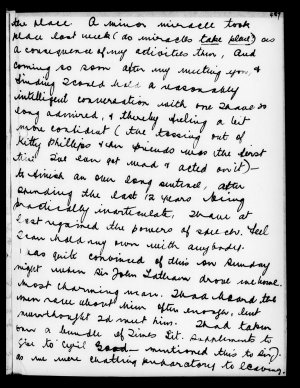 the place. A minor miracle took
place last week (do miracles take place) as
a consequence of my activities then, and
coming so soon after my meeting you, &
finding I could hold a reasonably
intelligent conversation with one I have so
long admired, & thereby feeling a bit
more confident (the tossing out of
Kitty Phillips & her friends was the first
time I've ever got mad & acted on it) —
to finish an over long sentence, after
spending the last 12 years being
practically inarticulate, I have at
last regained the powers of speech. Feel
I can hold my own with anybody.
I was quite convinced of this on Sunday
night when Sir John Latham drove me home.
Most charming man. I had heard the
men rave about him often enough, but
never thought I'd meet him. I had taken
over a bundle of Times Lit. Supplements to
give to Cyril Good — mentioned this to Sir J.
as we were chatting preparatory to leaving.